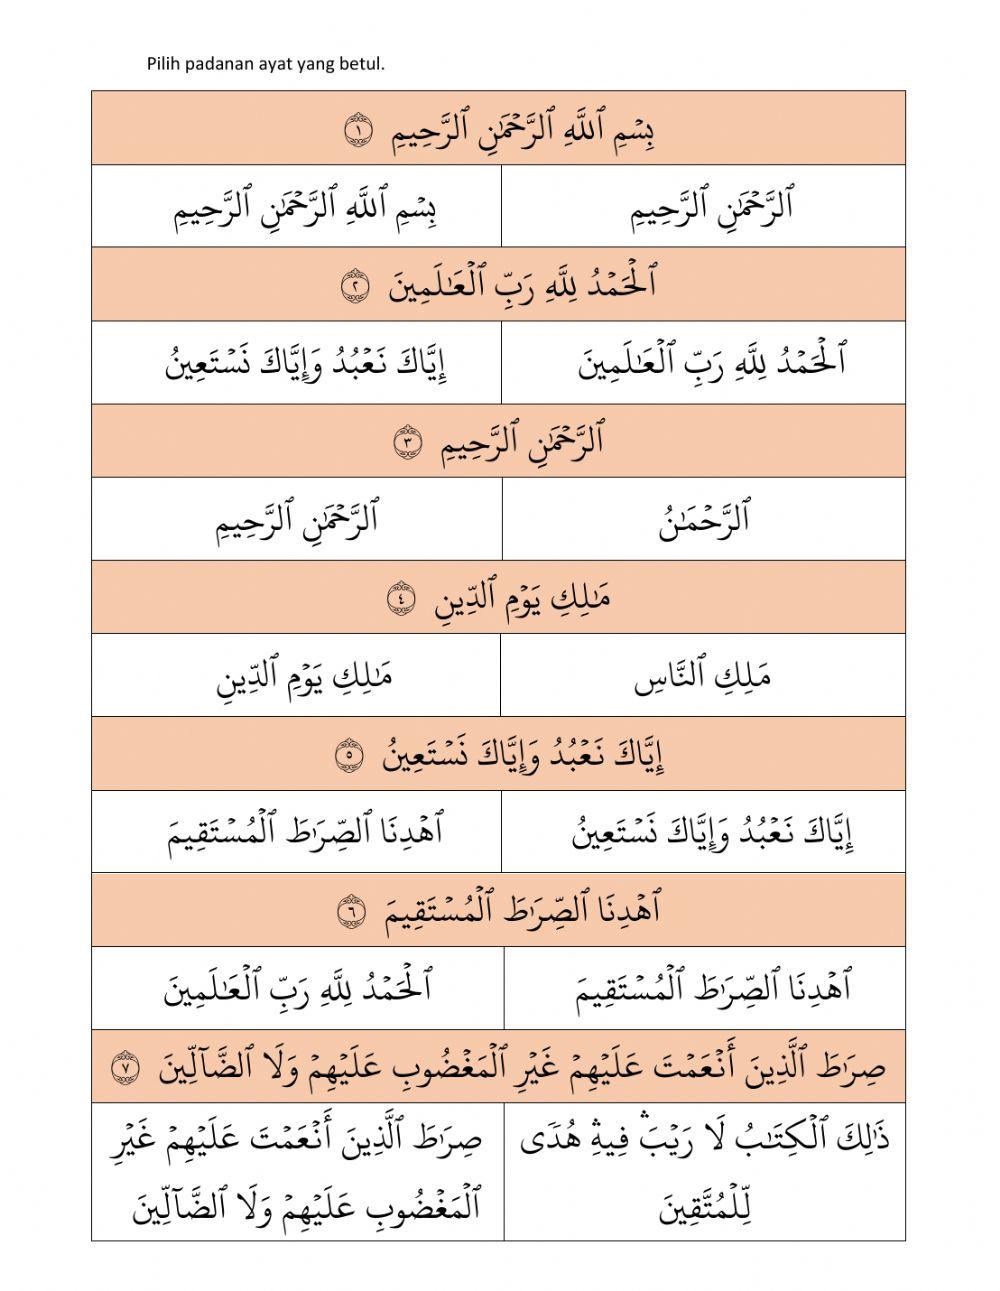 Pilih padanan ayat yang betul.
بِسۡمِ ٱللَّهِ ٱلرَّحۡمَٰنِ ٱلرَّحِيمِ ١
ٱلرَّحۡمَٰنِ ٱلرَّحِيمِ
بِسۡمِ ٱللَّهِ ٱلرَّحۡمَٰنِ ٱلرَّحِيمِ
ٱلۡحَمۡدُ لِلَّهِ رَبِّ ٱلۡعَٰلَمِينَ ٢
ٱلۡحَمۡدُ لِلَّهِ رَبِّ ٱلۡعَٰلَمِينَ
إِيَّاكَ نَعۡبُدُ وَإِيَّاكَ نَسۡتَعِينُ
ٱلرَّحۡمَٰنِ ٱلرَّحِيمِ ٣
ٱلرَّحۡمَٰنُ
ٱلرَّحۡمَٰنِ ٱلرَّحِيمِ
مَٰلِكِ يَوۡمِ ٱلدِّينِ ٤
مَلِكِ ٱلنَّاسِ
مَٰلِكِ يَوۡمِ ٱلدِّينِ
إِيَّاكَ نَعۡبُدُ وَإِيَّاكَ نَسۡتَعِينُ ٥
إِيَّاكَ نَعۡبُدُ وَإِيَّاكَ نَسۡتَعِينُ
ٱهۡدِنَا ٱلصِّرَٰطَ ٱلۡمُسۡتَقِيمَ
ٱهۡدِنَا ٱلصِّرَٰطَ ٱلۡمُسۡتَقِيمَ ٦
ٱهۡدِنَا ٱلصِّرَٰطَ ٱلۡمُسۡتَقِيمَ
ٱلۡحَمۡدُ لِلَّهِ رَبِّ ٱلۡعَٰلَمِينَ
صِرَٰطَ ٱلَّذِينَ أَنۡعَمۡتَ عَلَيۡهِمۡ غَيۡرِ ٱلۡمَغۡضُوبِ عَلَيۡهِمۡ وَلَا ٱلضَّآلِّينَ ٧
ذَٰلِكَ ٱلۡكِتَٰبُ لَا رَيۡبَۛ فِيهِۛ هُدٗى
لِّلۡمُتَّقِينَ
صِرَٰطَ ٱلَّذِينَ أَنۡعَمۡتَ عَلَيۡهِمۡ غَيۡرِ
ٱلۡمَغۡضُوبِ عَلَيۡهِمۡ وَلَا ٱلضَّآلِّينَ